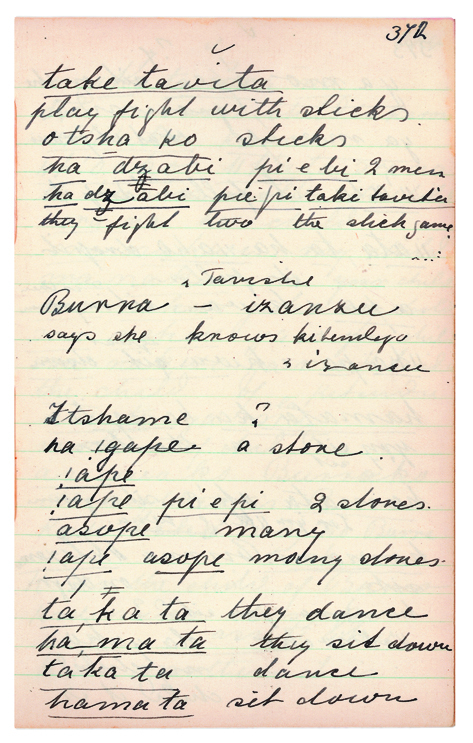 372
take tavita
play fight with sticks.
otsha ko sticks
ha dzabi pi e bi 2 men
ha dzabi piepi take tavita
they fight two the stick game
Tavishe
Burna – izanku
says she knows kibendega
izancu
Itshame ?
ha !gape a stone.
!ape
!ape pi e pi 2 stones.
asope many
!ape asope many stones.
ta ka ta they dance
ha, ma ta they sit down
taka ta dance
hamata sit down